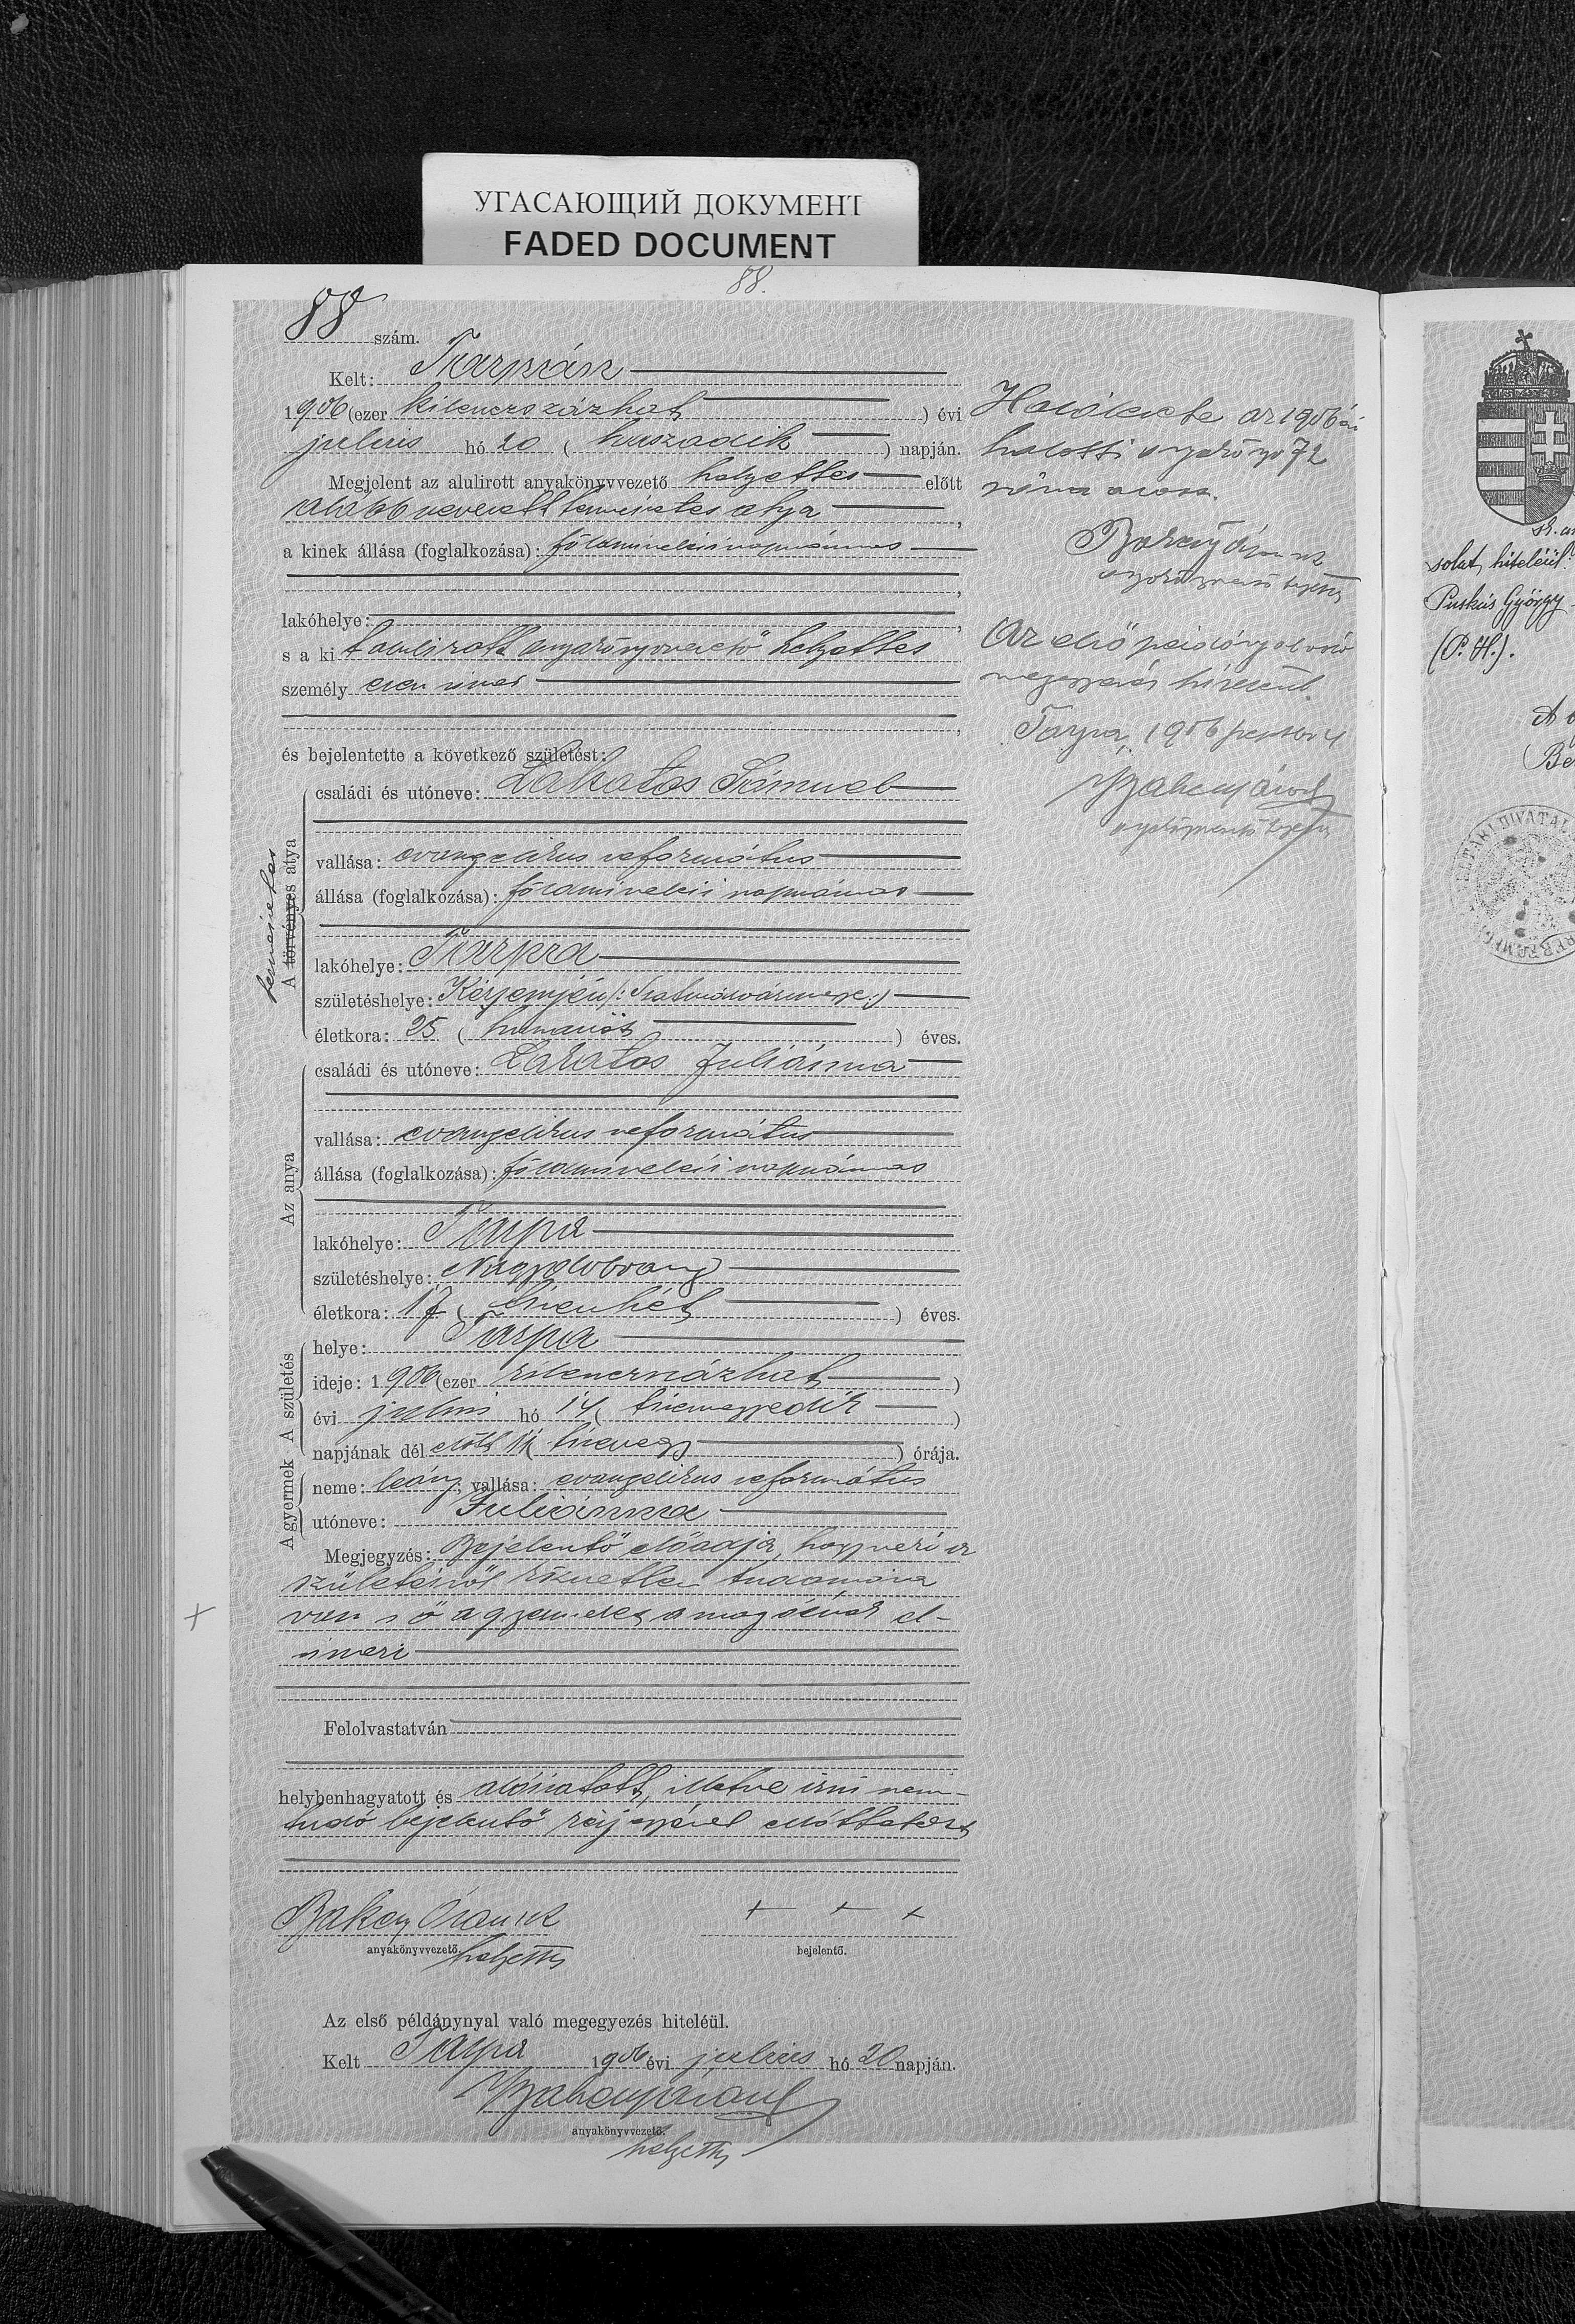 УГАСАЮЩИЙ ДОКУМЕНТ
FADED DOCUMENT
88.
88 szám.
Kelt: Tarpán
1906 (ezer kilenczszázhat ) évi
julius hó 20 ( huszadik ) napján.
Megjelent az alulirott anyakönyvvezető helyettes előtt
alább nevezett természetes atya ,
a kinek állása (foglalkozása): földmivelési napszámos
,
lakóhelye: ,
s a ki t alulirott anyakönyvvezető helyettes
személy esen ismer
,
és bejelentette a következő születést:
A törvényes atya
természetes
családi és utóneve: Lakatos Sámuel
vallása: evangelikus református
állása (foglalkozása): földmivelési napszámos
lakóhelye: Tarpa
születéshelye: Kérsemjén (: Szatmárvármegye :)
életkora: 25 ( huszonöt ) éves.
Az anya
családi és utóneve: Lakatos Juliánna
vallása: evangelikus református
állása (foglalkozása): földmivelési napszámos
lakóhelye: Tarpa
születéshelye: Nagydobrony
életkora: 17 ( tizenhét ) éves.
A születés
helye: Tarpa
ideje: 1906 (ezer kilenczszázhat )
évi julius hó 14 ( tizennegyedik )
napjának dél előtt 11 ( tizenegy ) órája.
A gyermek
neme: leány; vallása: evangelikus református
utóneve: Juliánna
Megjegyzés: Bejelentő előadja, hogy neki a
születésről közvetlen tudomása
van s ő a gyermeket a magáénak el-
ismeri
Felolvastatván
helybenhagyatott és aláiratott, illetve irni nem-
tudó bejelentő kézjegyével elláttatott
Bakay
+ + +
anyakönyvvezető. helyettes
bejelentő.
Az első példánynyal való megegyezés hiteléül.
Kelt Tarpa 1906 évi julius hó 20 napján.
anyakönyvvezető.
helyettes
az 1906 évi
halotti anyakönyv 72
száma alatt.
anyakönyvvezető helyettes
Az első példánynyal való
megegyezés hiteléül.
Tarpa, 1906
anyakönyvvezető helyettes
solat hiteléül.
Puskás György
(P. H.).